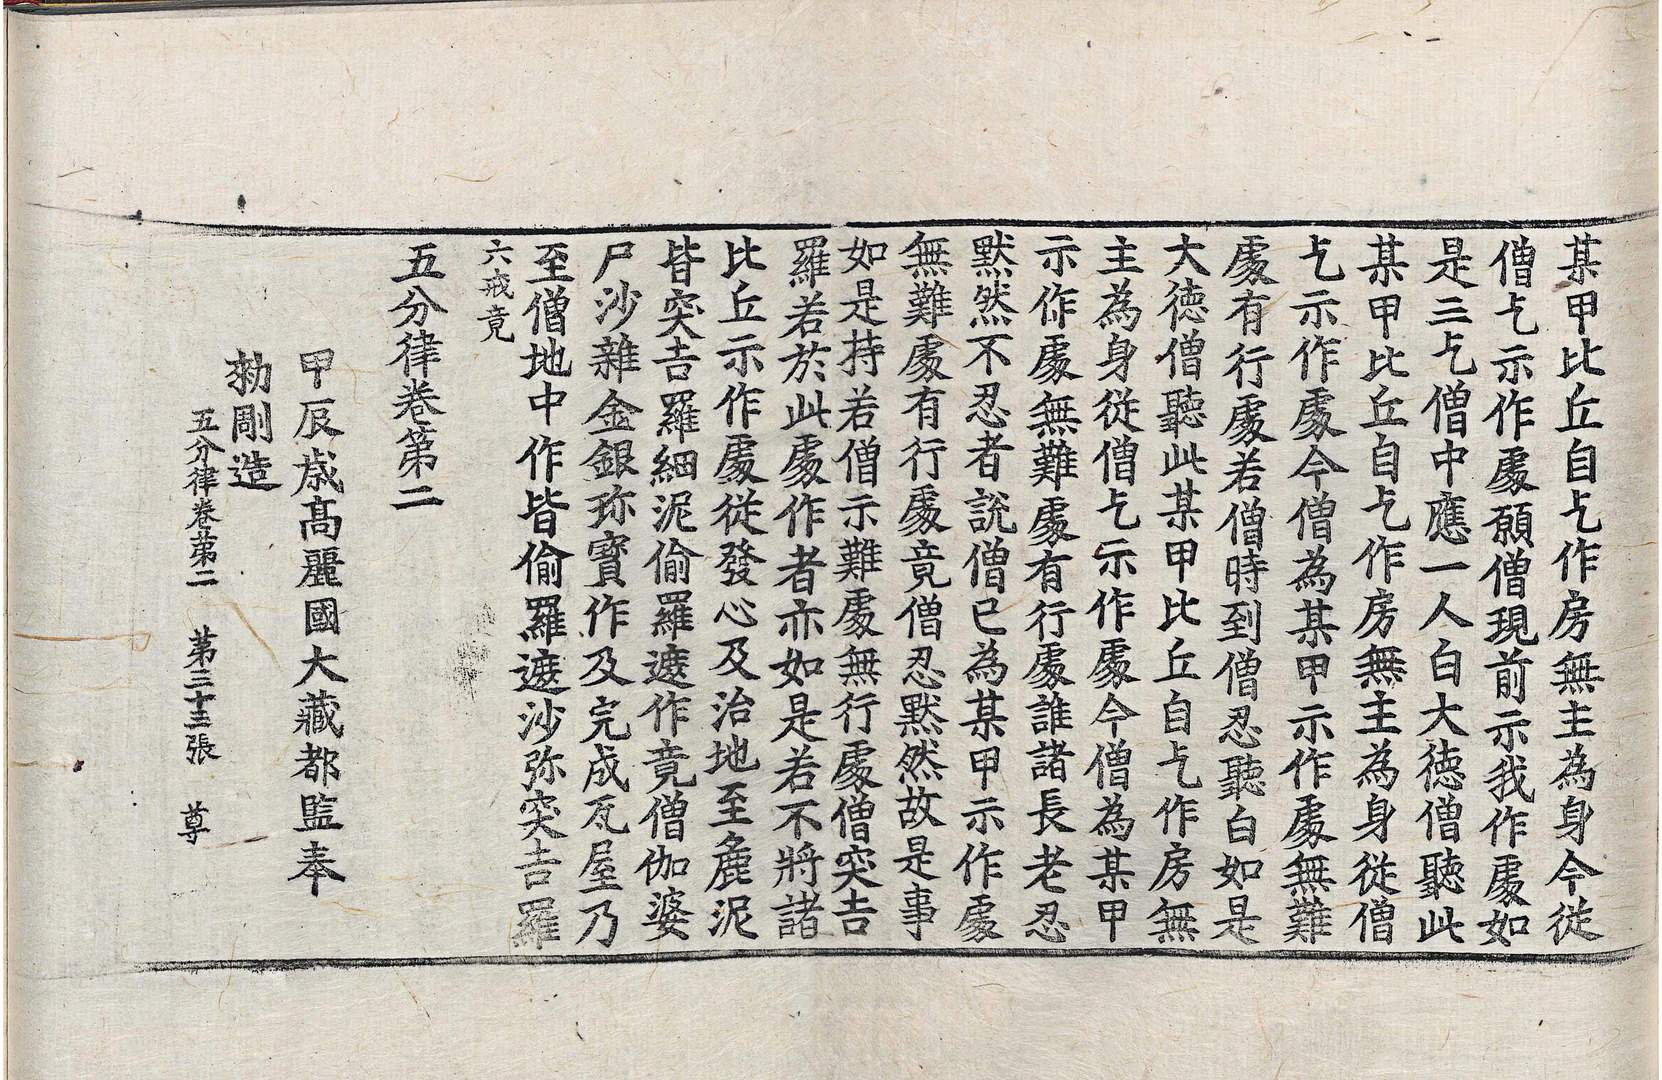 某甲比丘自乞作房無主為身今從
僧乞示作處願僧現前示我作處如
是三乞僧中應一人白大德僧聽此
某甲比丘自乞作房無主為身從僧
乞示作處今僧為某甲示作處無難
處有行處若僧時到僧忍聽白如是
大德僧聽此某甲比丘自乞作房無
主為身從僧乞示作處今僧為某甲
示作處無難處有行處誰諸長老忍
默然不忍者說僧已為某甲示作處
無難處有行處竟僧忍默然故是事
如是持若僧示難處無行處僧突吉
羅若於此處作者亦如是若不將諸
比丘示作處從發心及治地至麁泥
皆突吉羅細泥偷羅遮作竟僧伽婆
尸沙雜金銀珎寶作及完成瓦屋乃
至僧地中作皆偷羅遮沙弥突吉羅
六戒竟
五分律卷第二
甲辰歲高麗國大藏都監奉
勑彫造
五分律卷第二 第三十三張 尊